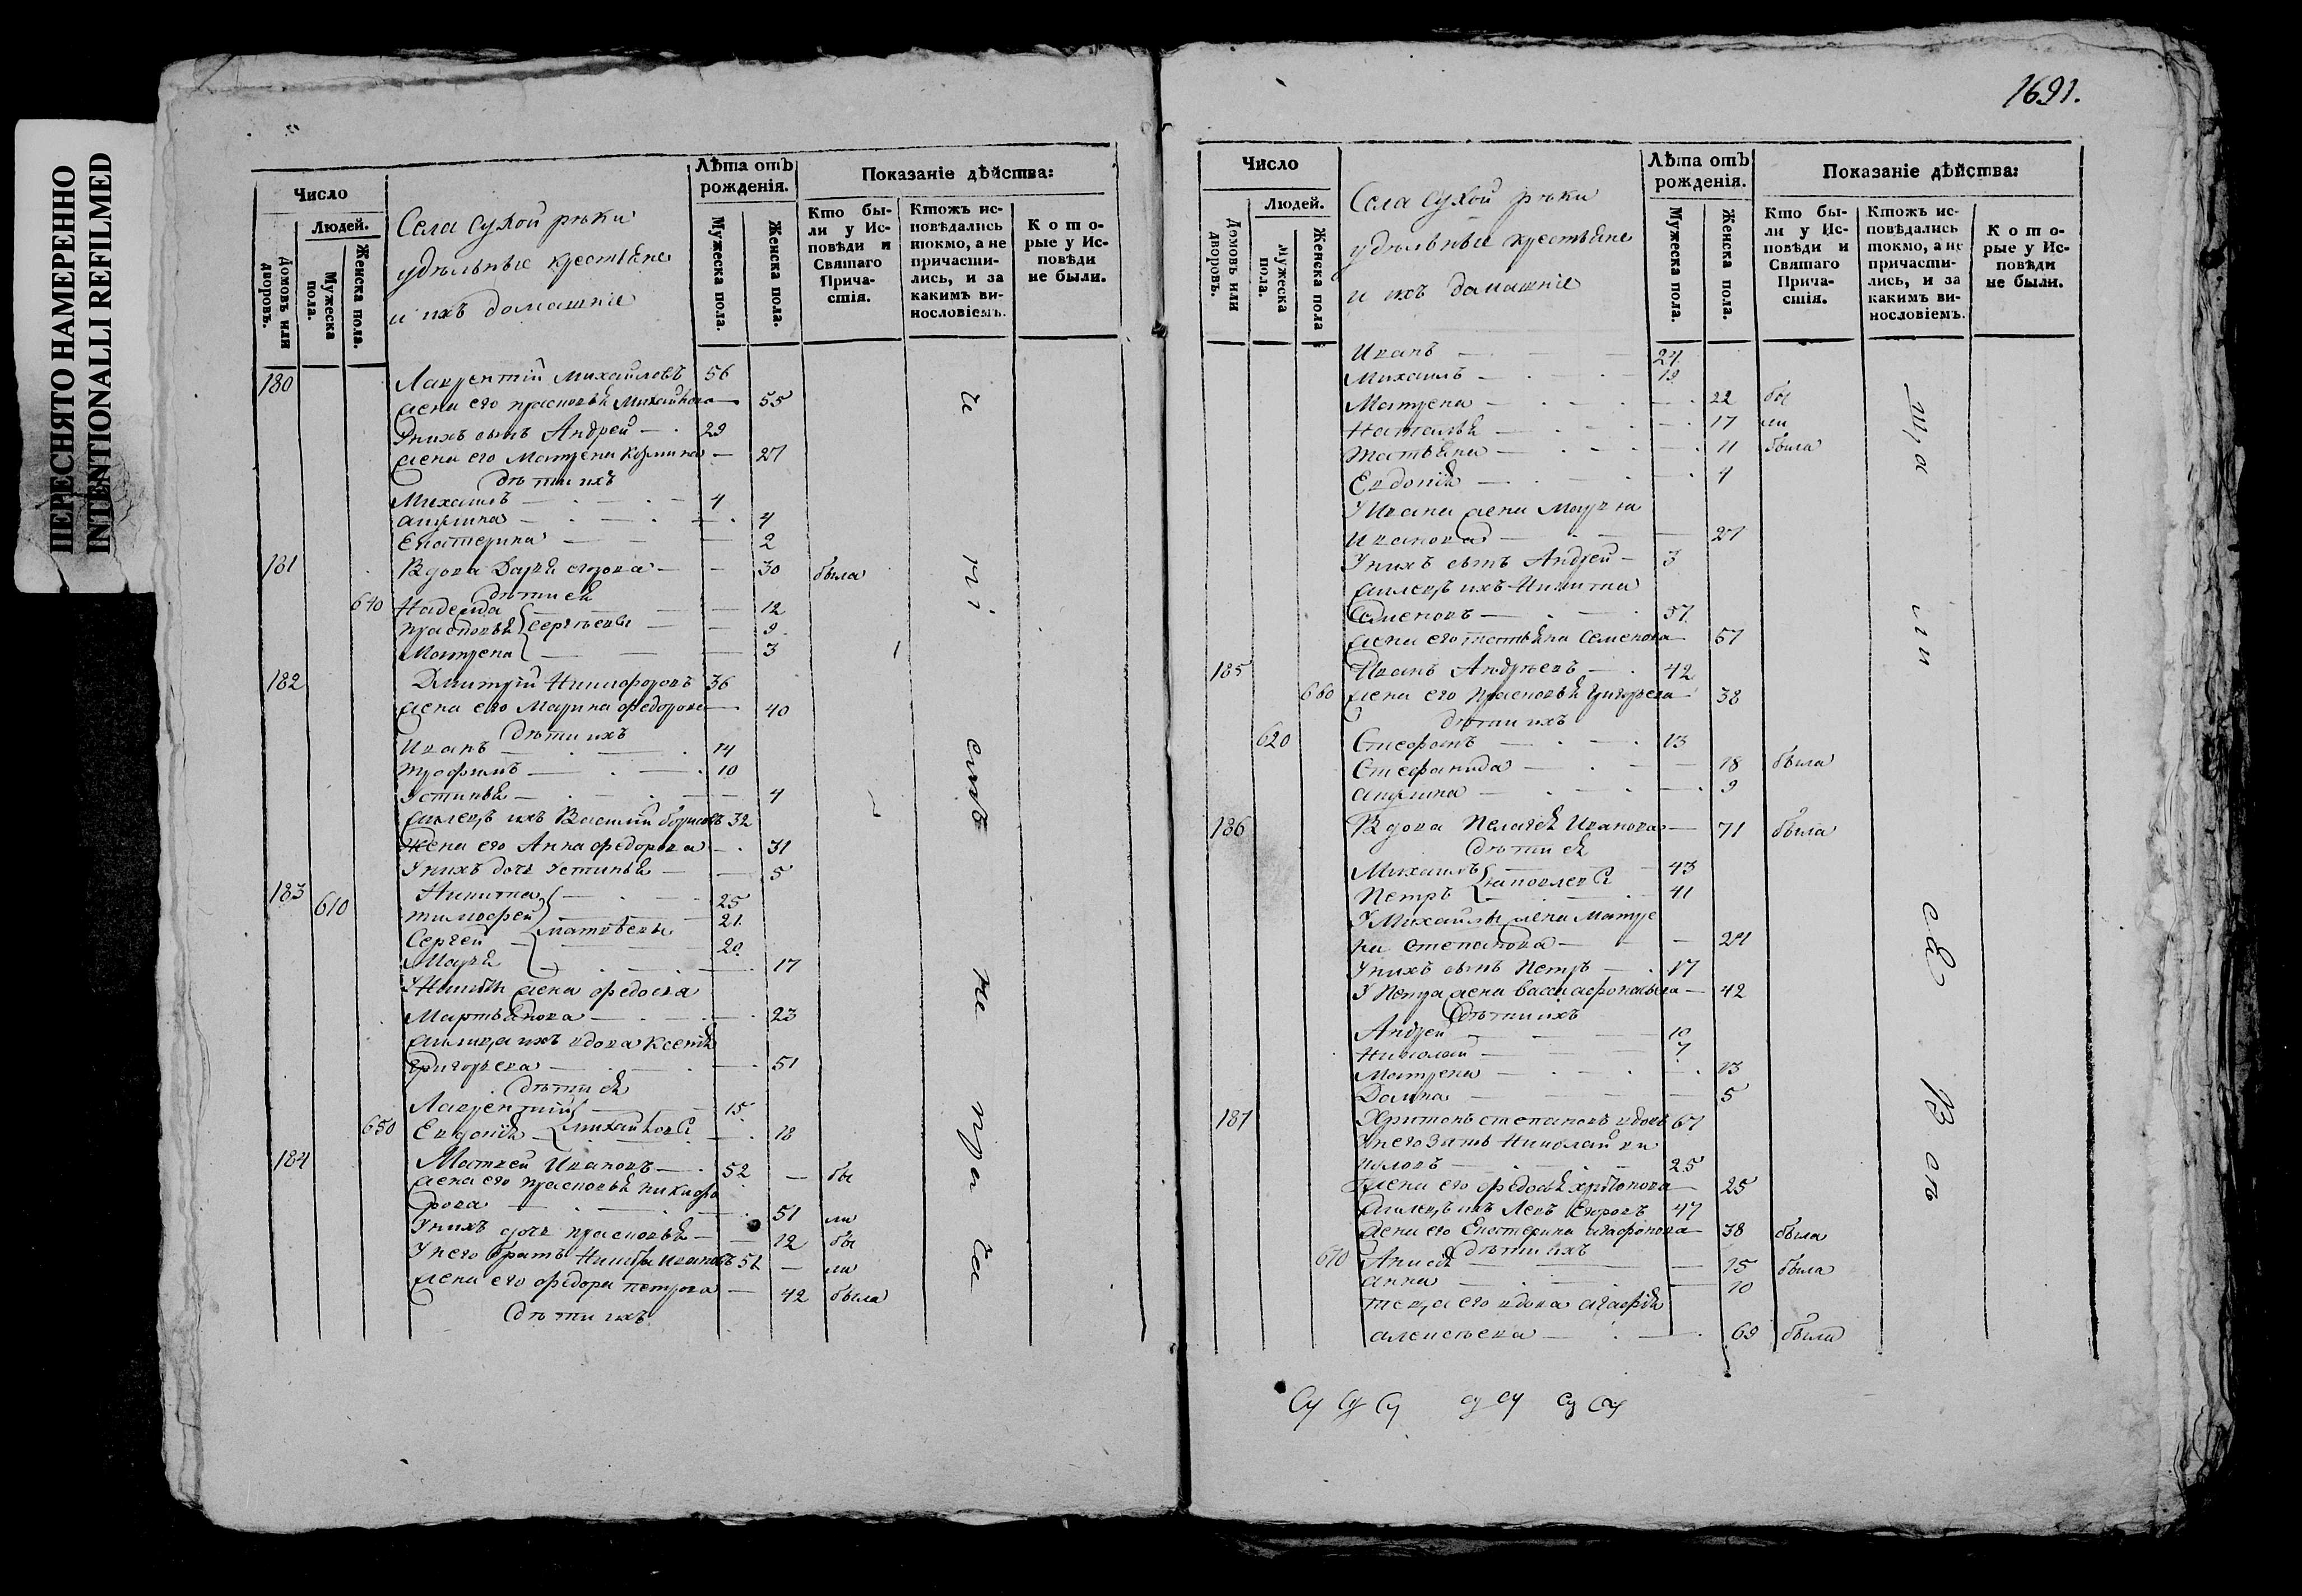 ПЕРЕСНЯТО НАМЕРЕННО
INTENTIONALLI REFILMED
Число
Людей.
Домовъ или дворовъ.
Мужеска пола.
Женска пола.
Села Сухой рѣки
удѣльные крестьяне
и ихъ домашніе
Лѣта отъ рожденія.
Мужеска пола.
Женска пола.
Показаніе дѣйства:
Кто были у Исповѣди и Святаго Причастія.
Ктожъ исповѣдались токмо, а не причастились, и за какимъ винословіемъ.
Которые у Исповѣди не были.
180 Лаврентій Михайловъ 56
жена его Прасковья Михайлова 55
У нихъ сынъ Андрей 29
жена его Матрена Козмина 27
дѣти ихъ
Михаилъ 4
Акулина 4
Екатерина 2
181 Вдова Дарья 30 была
дѣти ея
640 Надежда 12
Прасковья Сергѣевы 9
Матрена 3
182 Дмитрій Никифоровъ 36
жена его Марина Федорова 40
дѣти ихъ
Иванъ 14
Трофимъ 10
Устинья 4
Василій Борисовъ 32
Жена его Анна Федорова 31
У нихъ дочь Устинья 5
183 610 Никита 25
Тимофей 21
Сергей Матвѣевы 20
Марья 17
У Никиты жена Федосья
Мартьянова 23
ихъ вдова Ксенья
Григорьева 51
дѣти ея
Лаврентій 15
650 Евдокія Михайловы 18
184 Матвей Ивановъ 52 бы
жена его Прасковья Никифо
рова 51 ли
У нихъ дочь Прасковья 12 бы
У него братъ Никита Ивановъ 51 ли
жена его Федора Петрова 42 была
дѣти ихъ
1691.
Число
Людей.
Домовъ или дворовъ.
Мужеска пола.
Женска пола
Села Сухой рѣки
удѣльные крестьяне
и ихъ домашніе
Лѣта отъ рожденія.
Мужеска пола.
Женска пола.
Показаніе дѣйства:
Кто были у Исповѣди и Святаго Причастія.
Ктожъ исповѣдались токмо, а не причастились, и за какимъ винословіемъ.
Которые у Исповѣди не были.
Иванъ 24
Михаилъ 19
Матрена 22 бы
Наталья 17 ли
Татьяна 11 была
Евдокія 4
У Ивана жена Марѳа
Иванова 27
У нихъ сынъ Андрей 3
ихъ Никита
Семеновъ 57
жена его Татьяна Семенова 57
185 Иванъ Андрѣевъ 42
660 жена его Прасковья Григорьева 38
дѣти ихъ
620 Стефанъ 13
Стефанида 18 была
Акулина 9
186 Вдова Пелагія Иванова 71 была
дѣти ея
Михаилъ 43
Петръ Яковлевы 41
У Михайлы жена Матре
на Степанова
У нихъ сынъ Петръ 17
У Петра жена 42
дѣти ихъ
Андрей 10
Николай 7
Матрена 13
Домна 5
187 Харитонъ Степановъ вдовъ 67
У него зять Николай
25
жена его Федосья Харитонова 25
ихъ Левъ Егоровъ 47
жена его Екатерина Агафонова 38 была
дѣти ихъ
670 Анисья 15 была
Анна 10
теща его вдова Агафья
Алексѣева 69 была
Су Су Су су су су Су